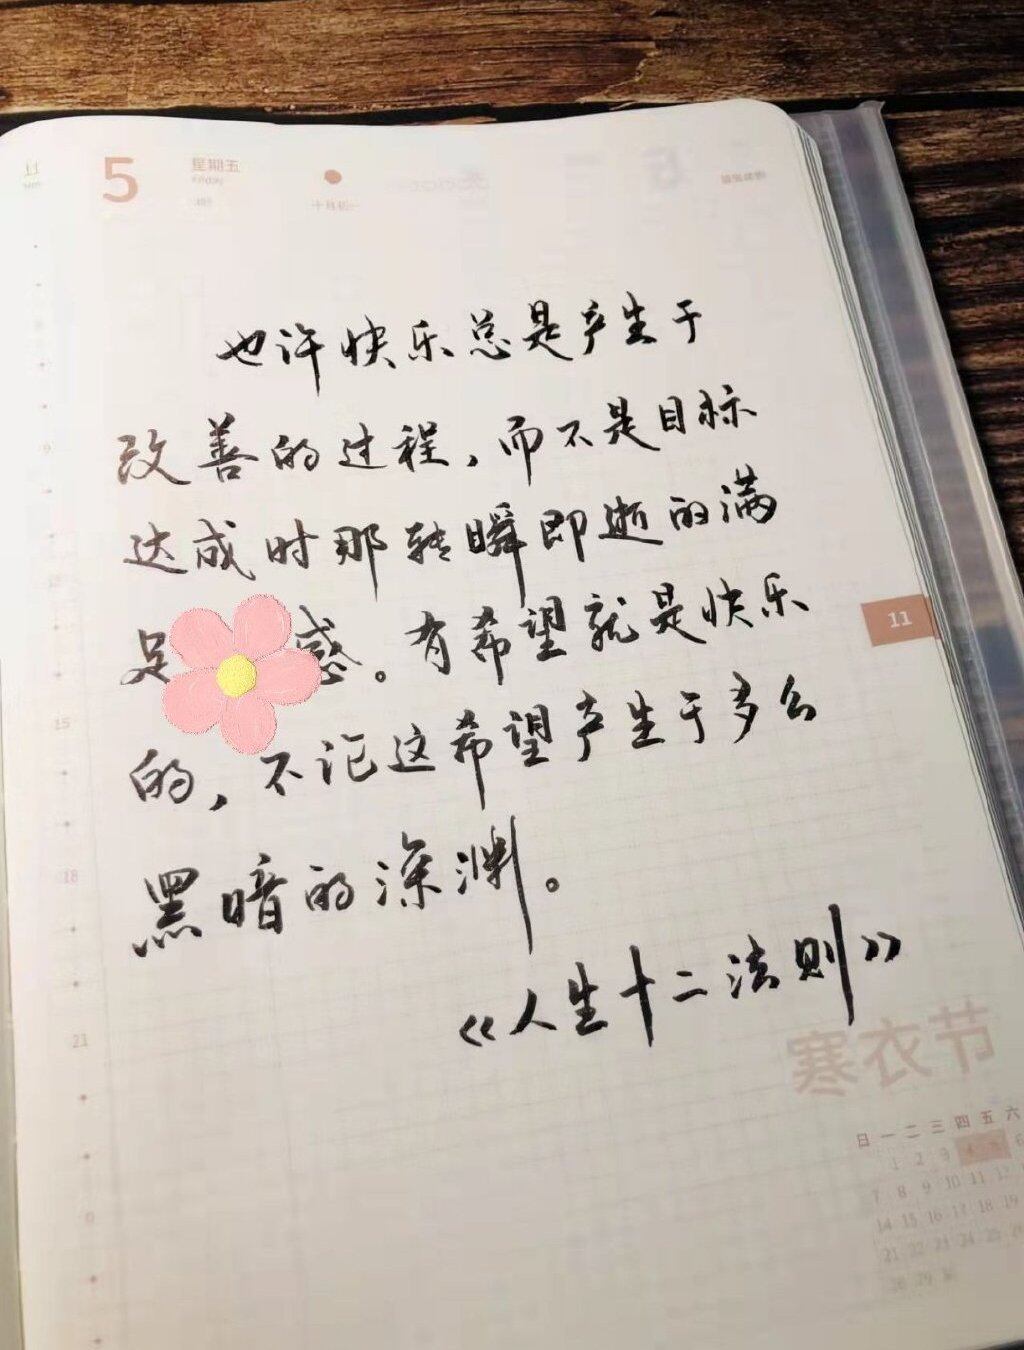 5 星期五
十月初一
也许快乐总是产生于
改善的过程，而不是目标
达成时那转瞬即逝的满
足 感。有希望就是快乐
的，不论这希望产生于多么
黑暗的深渊。
《人生十二法则》
11
寒衣节
日 一 二 三 四 五 六
1 2 3 4 5 6
7 8 9 10 11 12
14 15 16 17 18 19
21 22 23 24 25
28 29 30
9
15
18
21